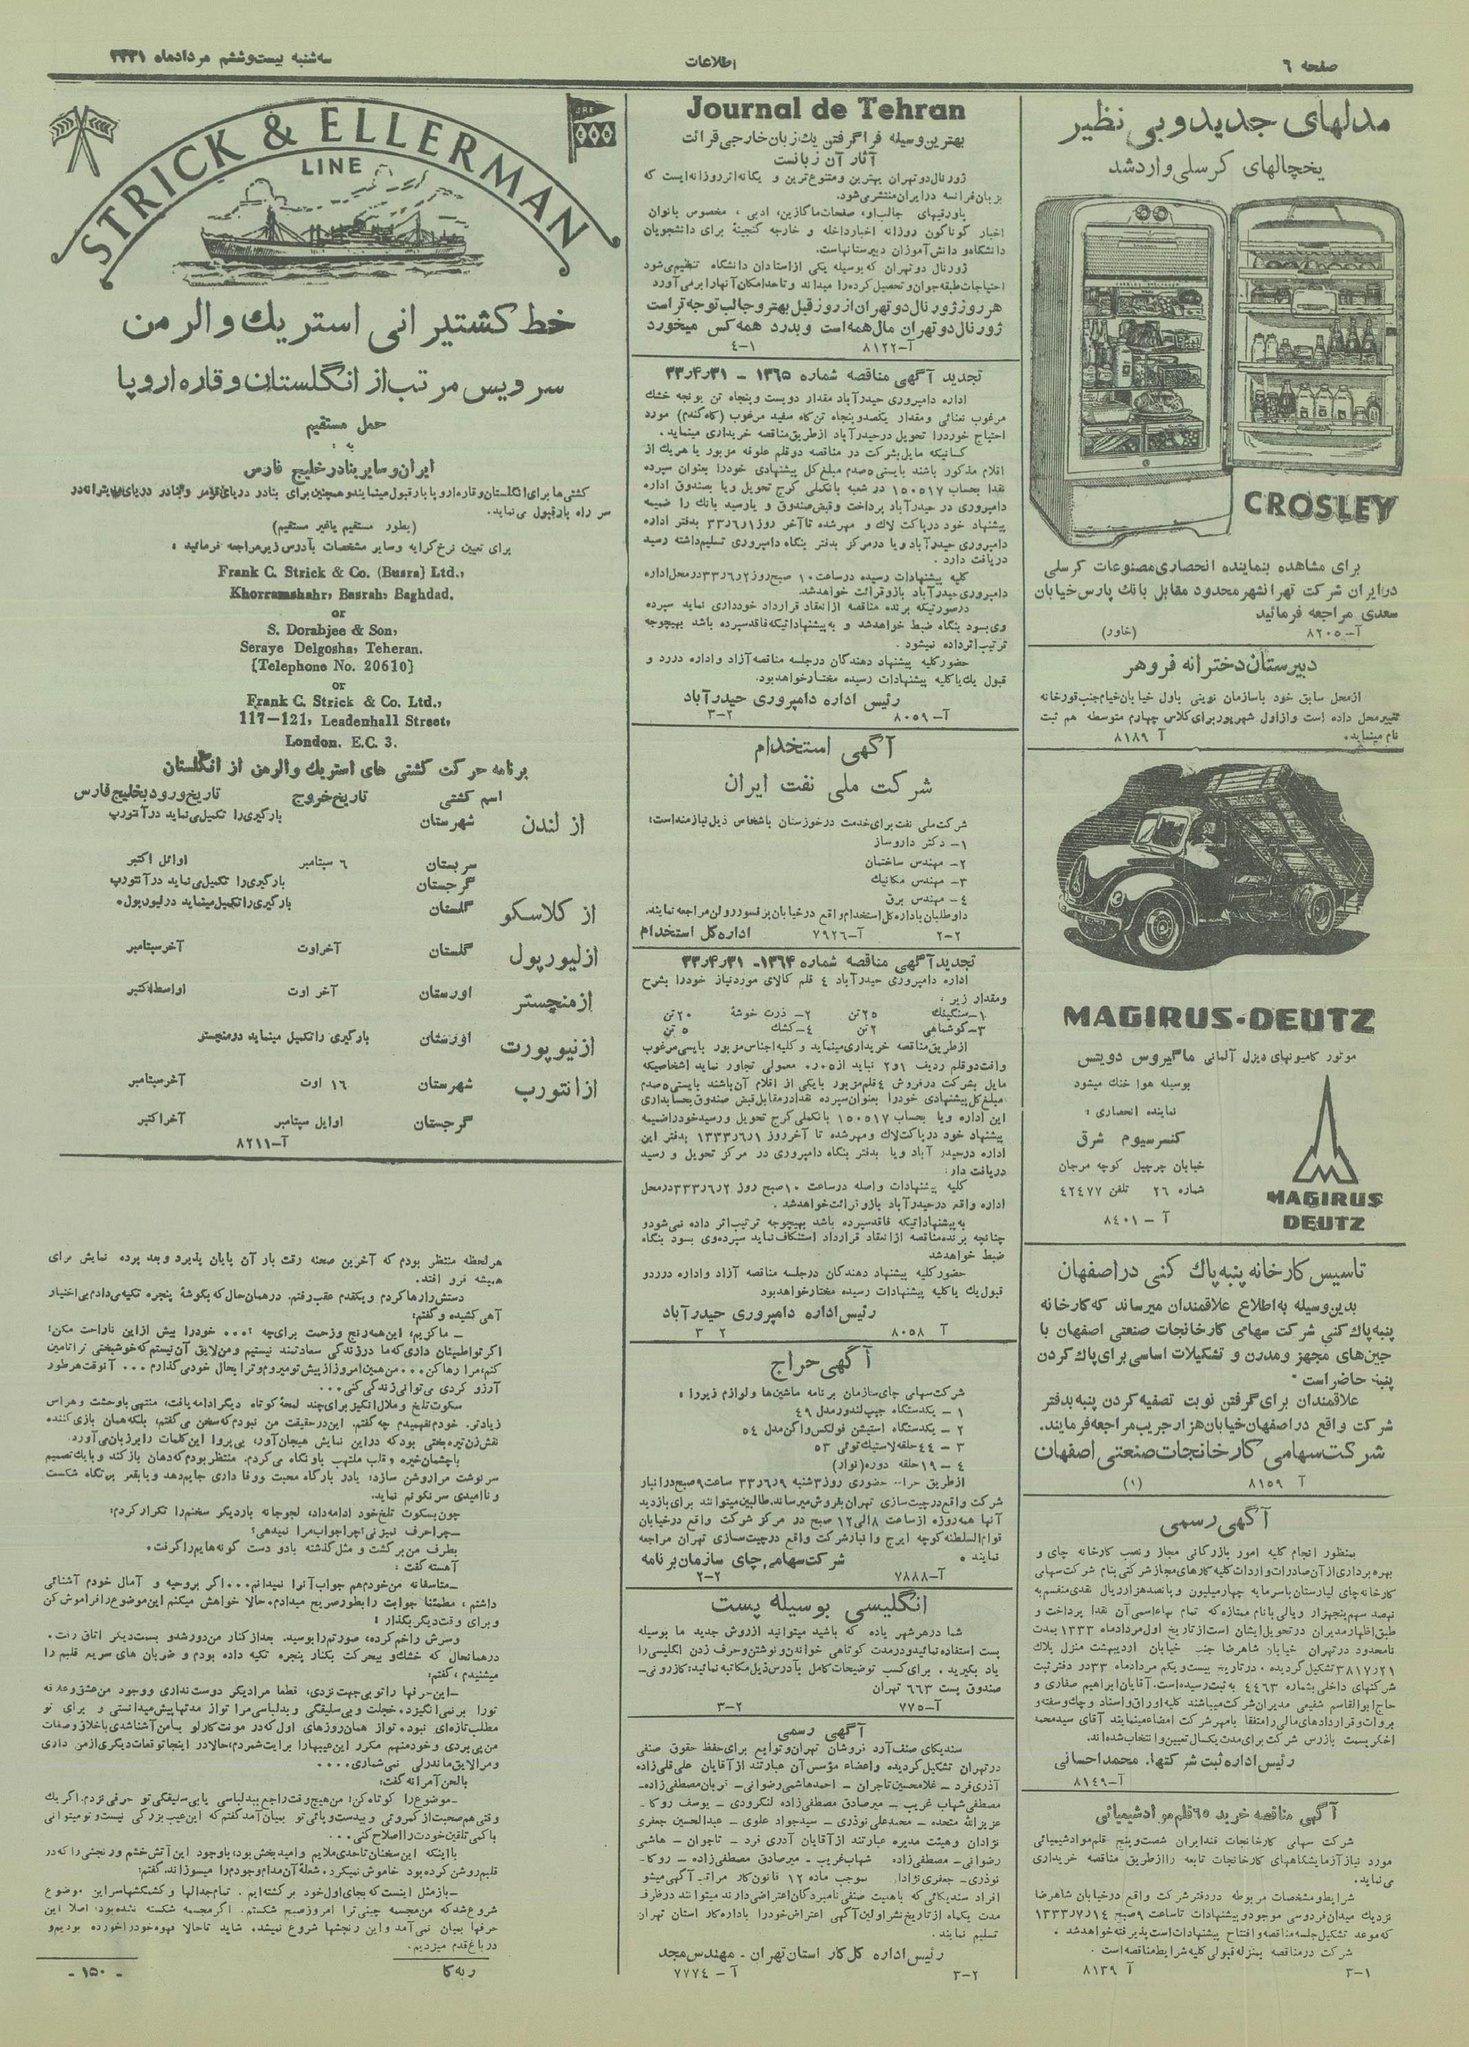 صفحه ٦
اطلاعات
سه‌شنبه بیست‌وششم مردادماه
مدلهای جدید و بی نظیر
یخچالهای کرسلی وارد شد
CROSLEY
برای مشاهده بنماینده انحصاری مصنوعات کرسلی
در ایران شرکت تهرانشهر محدود مقابل بانک پارس خیابان
سعدی مراجعه فرمائید
آ-۸۲۰۵ (خاور)
دبیرستان دخترانه فروهر
ازمحل سابق خود باسازمان نوینی باول خیابان خیام جنب قورخانه
تغییرمحل داده است وازاول شهریور برای کلاس چهارم متوسطه هم ثبت
نام مینماید.
آ ۸۱۸۹
MAGIRUS-DEUTZ
موتور کامیونهای دیزل آلمانی ماگیروس دویتس
بوسیله هوا خنک میشود
نماینده انحصاری :
کنسرسیوم شرق
خیابان چرچیل کوچه مرجان
شماره ۲۶ تلفن ۴۲۴۷۷
آ - ۸۴۰۱
MAGIRUS
DEUTZ
تاسیس کارخانه پنبه پاک کنی در اصفهان
بدین‌وسیله به‌اطلاع علاقمندان میرساند که کارخانه
پنبه پاک کنی شرکت سهامی کارخانجات صنعتی اصفهان با
جین‌های مجهز ومدرن و تشکیلات اساسی برای پاک کردن
پنبه حاضر است.
علاقمندان برای گرفتن نوبت تصفیه کردن پنبه بدفتر
شرکت واقع در اصفهان خیابان هزارجریب مراجعه فرمایند.
شرکت سهامی کارخانجات صنعتی اصفهان
آ ۸۱۵۹ (۱)
آگهی رسمی
بمنظور انجام کلیه امور بازرگانی مجاز و نصب کارخانه چای و
بهره برداری از آن صادرات واردات کلیه کارهای مجاز شرکتی بنام شرکت سهامی
کارخانه چای لیارستان باسرمایه چهارمیلیون و پانصدهزارریال نقدی منقسم به
نهصد سهم پنجهزار ریالی بانام ممتازه که تمام بهاء اسمی آن نقدا پرداخت و
طبق اظهار مدیران در تحویل ایشان است از تاریخ اول مردادماه ۱۳۳۳ بمدت
نامحدود در تهران خیابان شاهرضا جنب خیابان اردیبهشت منزل پلاک
تشکیل گردیده. در تاریخ بیست و یکم مردادماه ۳۳ در دفتر ثبت
شرکتهای داخلی بشماره ۴۴۶۳ به ثبت رسیده است. آقایان ابراهیم صفاری و
حاج ابوالقاسم شفیعی مدیران شرکت میباشند کلیه اوراق واسناد و چک وسفته و
بروات وقراردادهای مالی را متفقا بامهر شرکت امضاء مینمایند آقای سیدمحمد
بسمت بازرس شرکت برای مدت یکسال تعیین و انتخاب شده‌اند.
رئیس اداره ثبت شرکتها. محمد احسانی
آ-۸۱۴۹
آگهی مناقصه خرید ٦٥ قلم مواد شیمیائی
شرکت سهامی کارخانجات قند ایران شصت و پنج قلم مواد شیمیائی
مورد نیاز آزمایشگاههای کارخانجات تابعه را از طریق مناقصه خریداری
می‌نماید.
شرایط و مشخصات مربوطه در دفتر شرکت واقع در خیابان شاهرضا
نزدیک میدان فردوسی موجود و پیشنهادات تا ساعت ۹ صبح ۱۳۳۳/۷/۱۴
که موعد تشکیل جلسه مناقصه و افتتاح پیشنهادات است پذیرفته خواهد شد.
شرکت در مناقصه بمنزله قبولی کلیه شرایط مناقصه است.
۳-۱ آ ۸۱۳۹
Journal de Tehran
بهترین وسیله فراگرفتن یک زبان خارجی قرائت
آثار آن زبانست
ژورنال دو تهران بهترین و متنوع‌ترین و یگانه اثر روزانه ایست که
بزبان فرانسه در ایران منتشر می‌شود.
پاورقیهای جالب او، صفحات ماگازین، ادبی، مخصوص بانوان
اخبار گوناگون روزانه اخبار داخله و خارجه گنجینهٔ برای دانشجویان
دانشگاه و دانش آموزان دبیرستانهاست.
ژورنال دو تهران که بوسیله یکی از استادان دانشگاه تنظیم می‌شود
احتیاجات طبقه جوان و تحصیل کرده را میداند و تا حد امکان آنها را بر می آورد
هر روز ژورنال دو تهران از روز قبل بهتر و جالب توجه تر است
ژورنال دو تهران مال همه است و بدرد همه کس میخورد
آ-۸۱۲۲ ۴-۱
تجدید آگهی مناقصه شماره ۱۳۶۵ - ۳۳/۴/۳۱
اداره دامپروری حیدرآباد مقدار دویست و پنجاه تن یونجه خشک
مرغوب نعنائی و مقدار یکصدوپنجاه تن کاه سفید مرغوب (کاه گندم) مورد
احتیاج خود را تحویل در حیدرآباد از طریق مناقصه خریداری مینماید.
کسانیکه مایل بشرکت در مناقصه دو قلم علوفه مزبور یا هریک از
اقلام مذکور باشند بایستی ۵ صدم مبلغ کل پیشنهادی خود را بعنوان سپرده
نقدا بحساب ۱۵۰۵۱۷ در شعبه بانک ملی کرج تحویل و یا بصندوق اداره
دامپروری در حیدرآباد پرداخت و قبض صندوق و یا رسید بانک را ضمیمه
پیشنهاد خود در پاکت لاک و مهر شده تا آخر روز ۳۳/۶/۱ بدفتر اداره
دامپروری حیدرآباد و یا در مرکز بدفتر بنگاه دامپروری تسلیم داشته رسید
دریافت دارد.
کلیه پیشنهادات رسیده در ساعت ۱۰ صبح روز ۳۳/۶/۲ در محل اداره
دامپروری حیدرآباد باز و قرائت خواهد شد.
در صورتیکه برنده مناقصه از انعقاد قرارداد خودداری نماید سپرده
وی بسود بنگاه ضبط خواهد شد و به پیشنهاداتیکه فاقد سپرده باشد بهیچوجه
ترتیب اثر داده نمیشود.
حضور کلیه پیشنهاد دهندگان در جلسه مناقصه آزاد و اداره در رد و
قبول یک یا کلیه پیشنهادات رسیده مختار خواهد بود.
رئیس اداره دامپروری حیدرآباد
آ-۸۰۵۹ ۳-۲
آگهی استخدام
شرکت ملی نفت ایران
شرکت ملی نفت برای خدمت در خوزستان باشخاص ذیل نیازمند است:
۱- دکتر داروساز
۲- مهندس ساختمان
۳- مهندس مکانیک
۴- مهندس برق
داوطلبان باداره کل استخدام واقع در خیابان پرفسور رولن مراجعه نمایند.
۲-۲ آ-۷۹۲۶ اداره کل استخدام
تجدید آگهی مناقصه شماره ۱۳۶۴- ۳۳/۴/۳۱
اداره دامپروری حیدرآباد ٤ قلم کالای مورد نیاز خود را بشرح
و مقدار زیر:
۱-سنگینک ۲۵ تن ۲- ذرت خوشهٔ ۲۰ تن
۳-گوشماهی ۲ تن ۴-کشک ۵ تن
از طریق مناقصه خریداری مینماید و کلیه اجناس مزبور بایستی مرغوب
معمولی تجاوز نماید اشخاصیکه
مایل بشرکت در فروش ٤ قلم مزبور یا یکی از اقلام آن باشند بایستی ۵ صدم
مبلغ کل پیشنهادی خود را بعنوان سپرده نقدا در مقابل قبض صندوق بحسابداری
این اداره و یا بحساب ۱۵۰۵۱۷ بانک ملی کرج تحویل و رسید خود را ضمیمه
پیشنهاد خود در پاکت لاک و مهر شده تا آخر روز ۱۳۳۳/۶/۱ بدفتر این
اداره در حیدر آباد و یا بدفتر بنگاه دامپروری در مرکز تحویل و رسید
دریافت دارد:
کلیه پیشنهادات واصله در ساعت ۱۰ صبح روز ۳۳۳/۶/۲ در محل
اداره واقع در حیدرآباد باز و قرائت خواهد شد.
به پیشنهاداتیکه فاقد سپرده باشد بهیچوجه ترتیب اثر داده نمی‌شود و
چنانچه برنده مناقصه از انعقاد قرارداد استنکاف نماید سپرده وی بسود بنگاه
ضبط خواهد شد
حضور کلیه پیشنهاد دهندگان در جلسه مناقصه آزاد و اداره در رد و
قبول یک یا کلیه پیشنهادات رسیده مختار خواهد بود
رئیس اداره دامپروری حیدرآباد
آ ۸۰۵۸ ۳ ۲
آگهی حراج
شرکت سهامی چای سازمان برنامه ماشین‌ها و لوازم زیر را:
۱ - یکدستگاه جیپ لندور مدل ٤٩
۲ - یکدستگاه استیشن فولکس واگن مدل ٥٤
۳ - ٤٤ حلقه لاستیک توئی ٥٣
٤ - ١٩ حلقه دوره (نوار)
از طریق حراج حضوری روز ۳ شنبه ۳۳/۶/۹ ساعت ۹ صبح در انبار
شرکت واقع در چیت سازی تهران بفروش میرساند. طالبین میتوانند برای بازدید
آنها همه روزه از ساعت ۸ الی ۱۲ صبح در مرکز شرکت واقع در خیابان
قوام السلطنه کوچه ایرج و انبار شرکت واقع در چیت سازی تهران مراجعه
نمایند. شرکت سهامی چای سازمان برنامه
آ-۷۸۸۸ ۲-۲
انگلیسی بوسیله پست
شما در هر شهر یاده که باشید میتوانید از روش جدید ما بوسیله
پست استفاده نمائید و در مدت کوتاهی خواندن و نوشتن و حرف زدن انگلیسی را
یاد بگیرید. برای کسب توضیحات کامل بآدرس ذیل مکاتبه نمائید: کازرونی-
صندوق پست ٦٦٣ تهران
آ-۷۷۵ ۳-۲
آگهی رسمی
سندیکای صنف آرد فروشان تهران و توابع برای حفظ حقوق صنفی
در تهران تشکیل گردیده و اعضاء مؤسس آن عبارتند از آقایان علی قلی زاده
آذری فرد - غلامحسین تاجران - احمد هاشمی رضوانی - نریمان مصطفی زاده-
مصطفی شهاب غریب - میرصادق مصطفی زاده لنگرودی - یوسف روکا-
عزیزالله متحده - محمدعلی نوذری - سیدجواد علوی - عبدالحسین جعفری
نژادان و هیئت مدیره عبارتند از آقایان آذری فرد - تاجران - هاشمی
رضوانی - مصطفی زاده شهاب غریب - میرصادق مصطفی زاده - روکا-
نوذری - جعفری نژادان. بموجب ماده ۱۲ قانون کار مراتب آگهی میشود
افراد سندیکائی که باهلیت صنفی نامبردگان اعتراضی دارند میتوانند در ظرف
مدت یکماه از تاریخ نشر اولین آگهی اعتراض خود را باداره کار استان تهران
تسلیم نمایند.
رئیس اداره کل کار استان تهران - مهندس مجد
۳-۲ آ - ۷۷۷۴
STRICK & ELLERMAN
LINE
خط کشتیرانی استریک و الرمن
سرویس مرتب از انگلستان و قاره اروپا
حمل مستقیم
به:
ایران و سایر بنادر خلیج فارس
کشتی ها برای انگلستان و قاره اروپا بار قبول مینمایند و همچنین برای بنادر دریای احمر و بنادر دریای مدیترانه در
سر راه بار قبول می نماید.
(بطور مستقیم یا غیر مستقیم)
برای تعیین نرخ کرایه و سایر مشخصات بآدرس زیر مراجعه فرمائید:
Frank C. Strick & Co. (Busra) Ltd.,
Khorramshahr, Basrah, Baghdad.
or
S. Dorabjee & Son,
Seraye Delgosha, Teheran.
(Telephone No. 20610)
or
Frank C. Strick & Co. Ltd.,
117-121, Leadenhall Street,
London. E.C. 3.
برنامه حرکت کشتی های استریک و الرمن از انگلستان
اسم کشتی تاریخ خروج تاریخ ورود بخلیج فارس
از لندن شهرستان بارگیری را تکمیل می نماید در آنتورپ
سربستان ٦ سپتامبر اوائل اکتبر
گرجستان بارگیری را تکمیل می نماید در آنتورپ
از گلاسکو گلستان بارگیری را تکمیل مینماید در لیورپول.
از لیورپول گلستان آخر اوت آخر سپتامبر
از منچستر اورستان آخر اوت اواسط اکتبر
از نیوپورت اورستان بارگیری را تکمیل مینماید در منچستر
از انتورب شهرستان ۱۶ اوت آخر سپتامبر
گرجستان اوایل سپتامبر آخر اکتبر
آ-۸۲۱۱
هر لحظه منتظر بودم که آخرین صحنه رقت بار آن پایان پذیرد و بعد پرده نمایش برای
همیشه فرو افتد.
دستش را رها کردم و یکقدم عقب رفتم. در همان حال که بگوشهٔ پنجره تکیه می‌دادم بی‌اختیار
آهی کشیده و گفتم:
- ماگزیم، اینهمه رنج و زحمت برای چه؟... خود را بیش از این ناراحت مکن!
اگر تو اطمینان داری که ما در زندگی سعادتمند نیستیم و من لایق آن نیستم که خوشبختی ترا تامین
کنم، مرا رها کن... من همین امروز از پیش تو میروم و ترا بحال خود می گذارم ... آنوقت هر طور
آرزو کردی می توانی زندگی کنی...
سکوت تلخ و ملال انگیز برای چند لحظهٔ کوتاه دیگر ادامه یافت، منتهی با وحشت و هراس
زیادتر. خودم نفهمیدم چه گفتم. این در حقیقت من نبودم که سخن می گفتم، بلکه همان بازی کننده
نقش زن تیره بختی بود که در این نمایش هیجان آور، بی پروا این کلمات را بر زبان می آورد.
با چشمان خیره و قلب ملتهب باو نگاه می کردم. منتظر بودم که دهان باز کند و با یک تصمیم
سرنوشت مرا روشن سازد؛ یا در بارگاه محبت و وفا داری جایم دهد و یا بقعر پرتگاه شکست
و ناامیدی سرنگونم نماید.
چون بسکوت تلخ خود ادامه داد، لجوجانه بار دیگر سخنم را تکرار کردم:
-چرا حرف نمیزنی؛ چرا جواب مرا نمیدهی؟
بطرف من برگشت و مثل گذشته با دو دست گونه هایم را گرفت.
آهسته گفت:
-متاسفانه من خودم هم جواب آنرا نمیدانم... اگر بروحیه و آمال خودم آشنائی
داشتم، مطمئنا جوابت را بطور صریح میدادم. حالا خواهش میکنم این موضوع را فراموش کن
و برای وقت دیگر بگذار!
و سرش را خم کرده، صورتم را بوسید. بعد از کنار من دور شد و بسمت دیگر اتاق رفت.
در همانحال که خشک و بیحرکت بکنار پنجره تکیه داده بودم و ضربان های سریع قلبم را
میشنیدم، گفتم:
-این حرفها را تو بی جهت نزدی، قطعا مرا دیگر دوست نداری و وجود من عشق و علاقه
تو را برنمی انگیزد. خجلت و بی سلیقگی و بدلباسی مرا تو از مدتها پیش میدانستی و برای تو
مطلب تازه‌ای نبود. تو از همان روزهای اول که در مونت کارلو با من آشنا شدی باخلاق وصفات
من پی بردی و خود منهم مکرر این عیبها را برایت شمردم، حالا در اینجا توقعات دیگری از من داری
و مرا لایق ماندرلی نمی شماری....
بالحن آمرانه گفت:
-موضوع را کوتاه کن! من هیچوقت راجع ببدلباسی یا بی سلیقگی تو حرفی نزدم. اگر یک
وقتی هم صحبت از کمروئی و بیدست و پائی تو بمیان آمد گفتم که این عیب بزرگی نیست و تو میتوانی
با کمی تلقین خودت را اصلاح کنی...
با اینکه این سخنان تا حدی ملایم و امید بخش بود، با وجود این آتش خشم و رنجشی را که در
قلبم روشن کرده بود خاموش نمیکرد، شعلهٔ آن مدام وجودم را میسوزاند. گفتم:
-باز مثل اینست که بجای اول خود برگشته‌ایم. تمام جدالها و کشمکشها سر این موضوع
شروع شد که من مجسمه چینی ترا امروز صبح شکستم. اگر مجسمه شکسته نشده بود، اصلا این
حرفها بمیان نمی آمد و این رنجشها شروع نمیشد، شاید تا حالا قهوه خود را خورده بودیم و
در باغ قدم میزدیم.
ربه کا - ۱۵۰ -